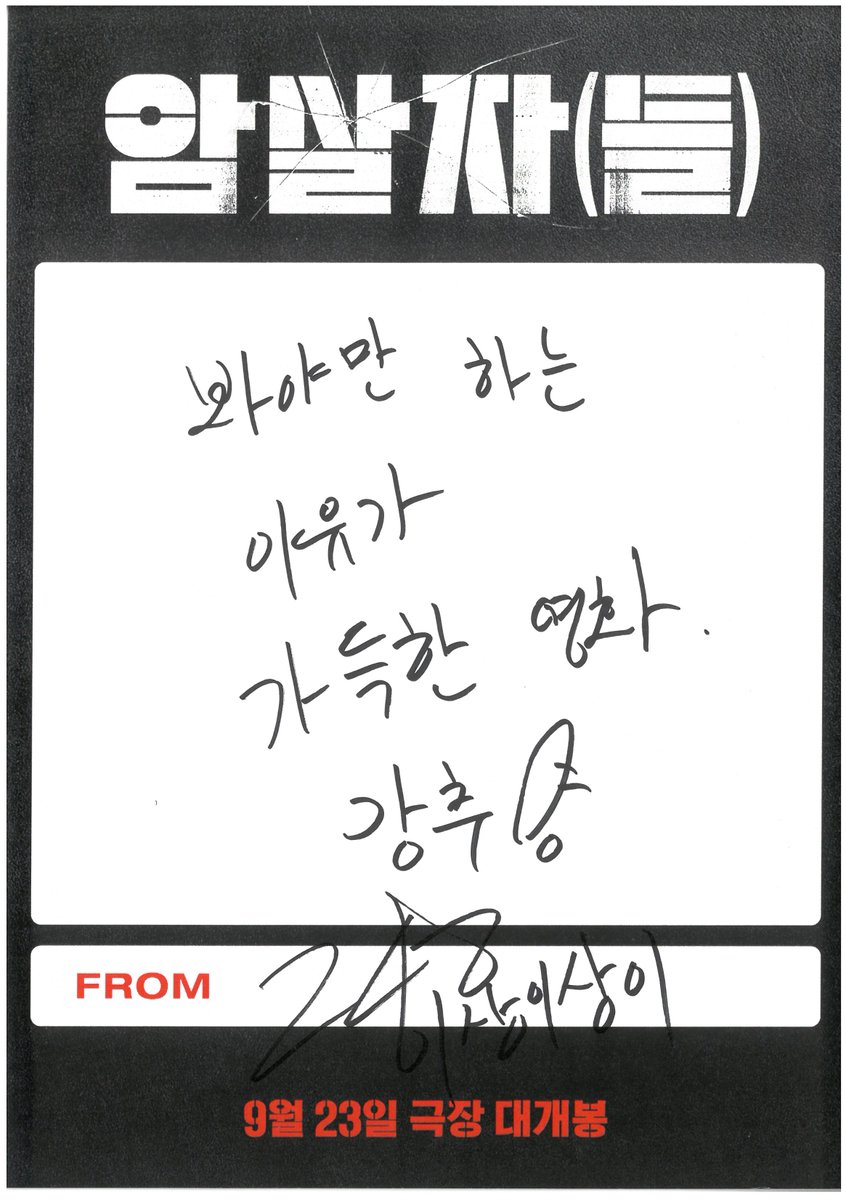 암살자(들)
봐야만 하는
이유가
가득한 영화.
강추
FROM
이상이
9월 23일 극장 대개봉